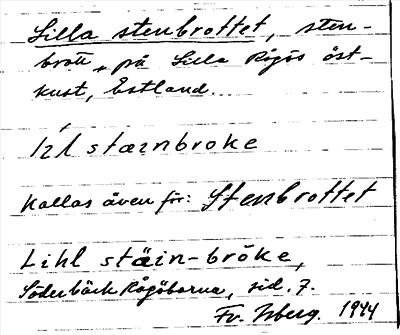 Lilla stenbrottet, sten-
brott, på Lilla Rågös öst-
kust, Estland.
stæɪnbroke
Kallas även för: Stenbrottet
Lihl stäin-bröke,
Söderbäck Rågöborna, sid. 7.
Fr. Isberg. 1944